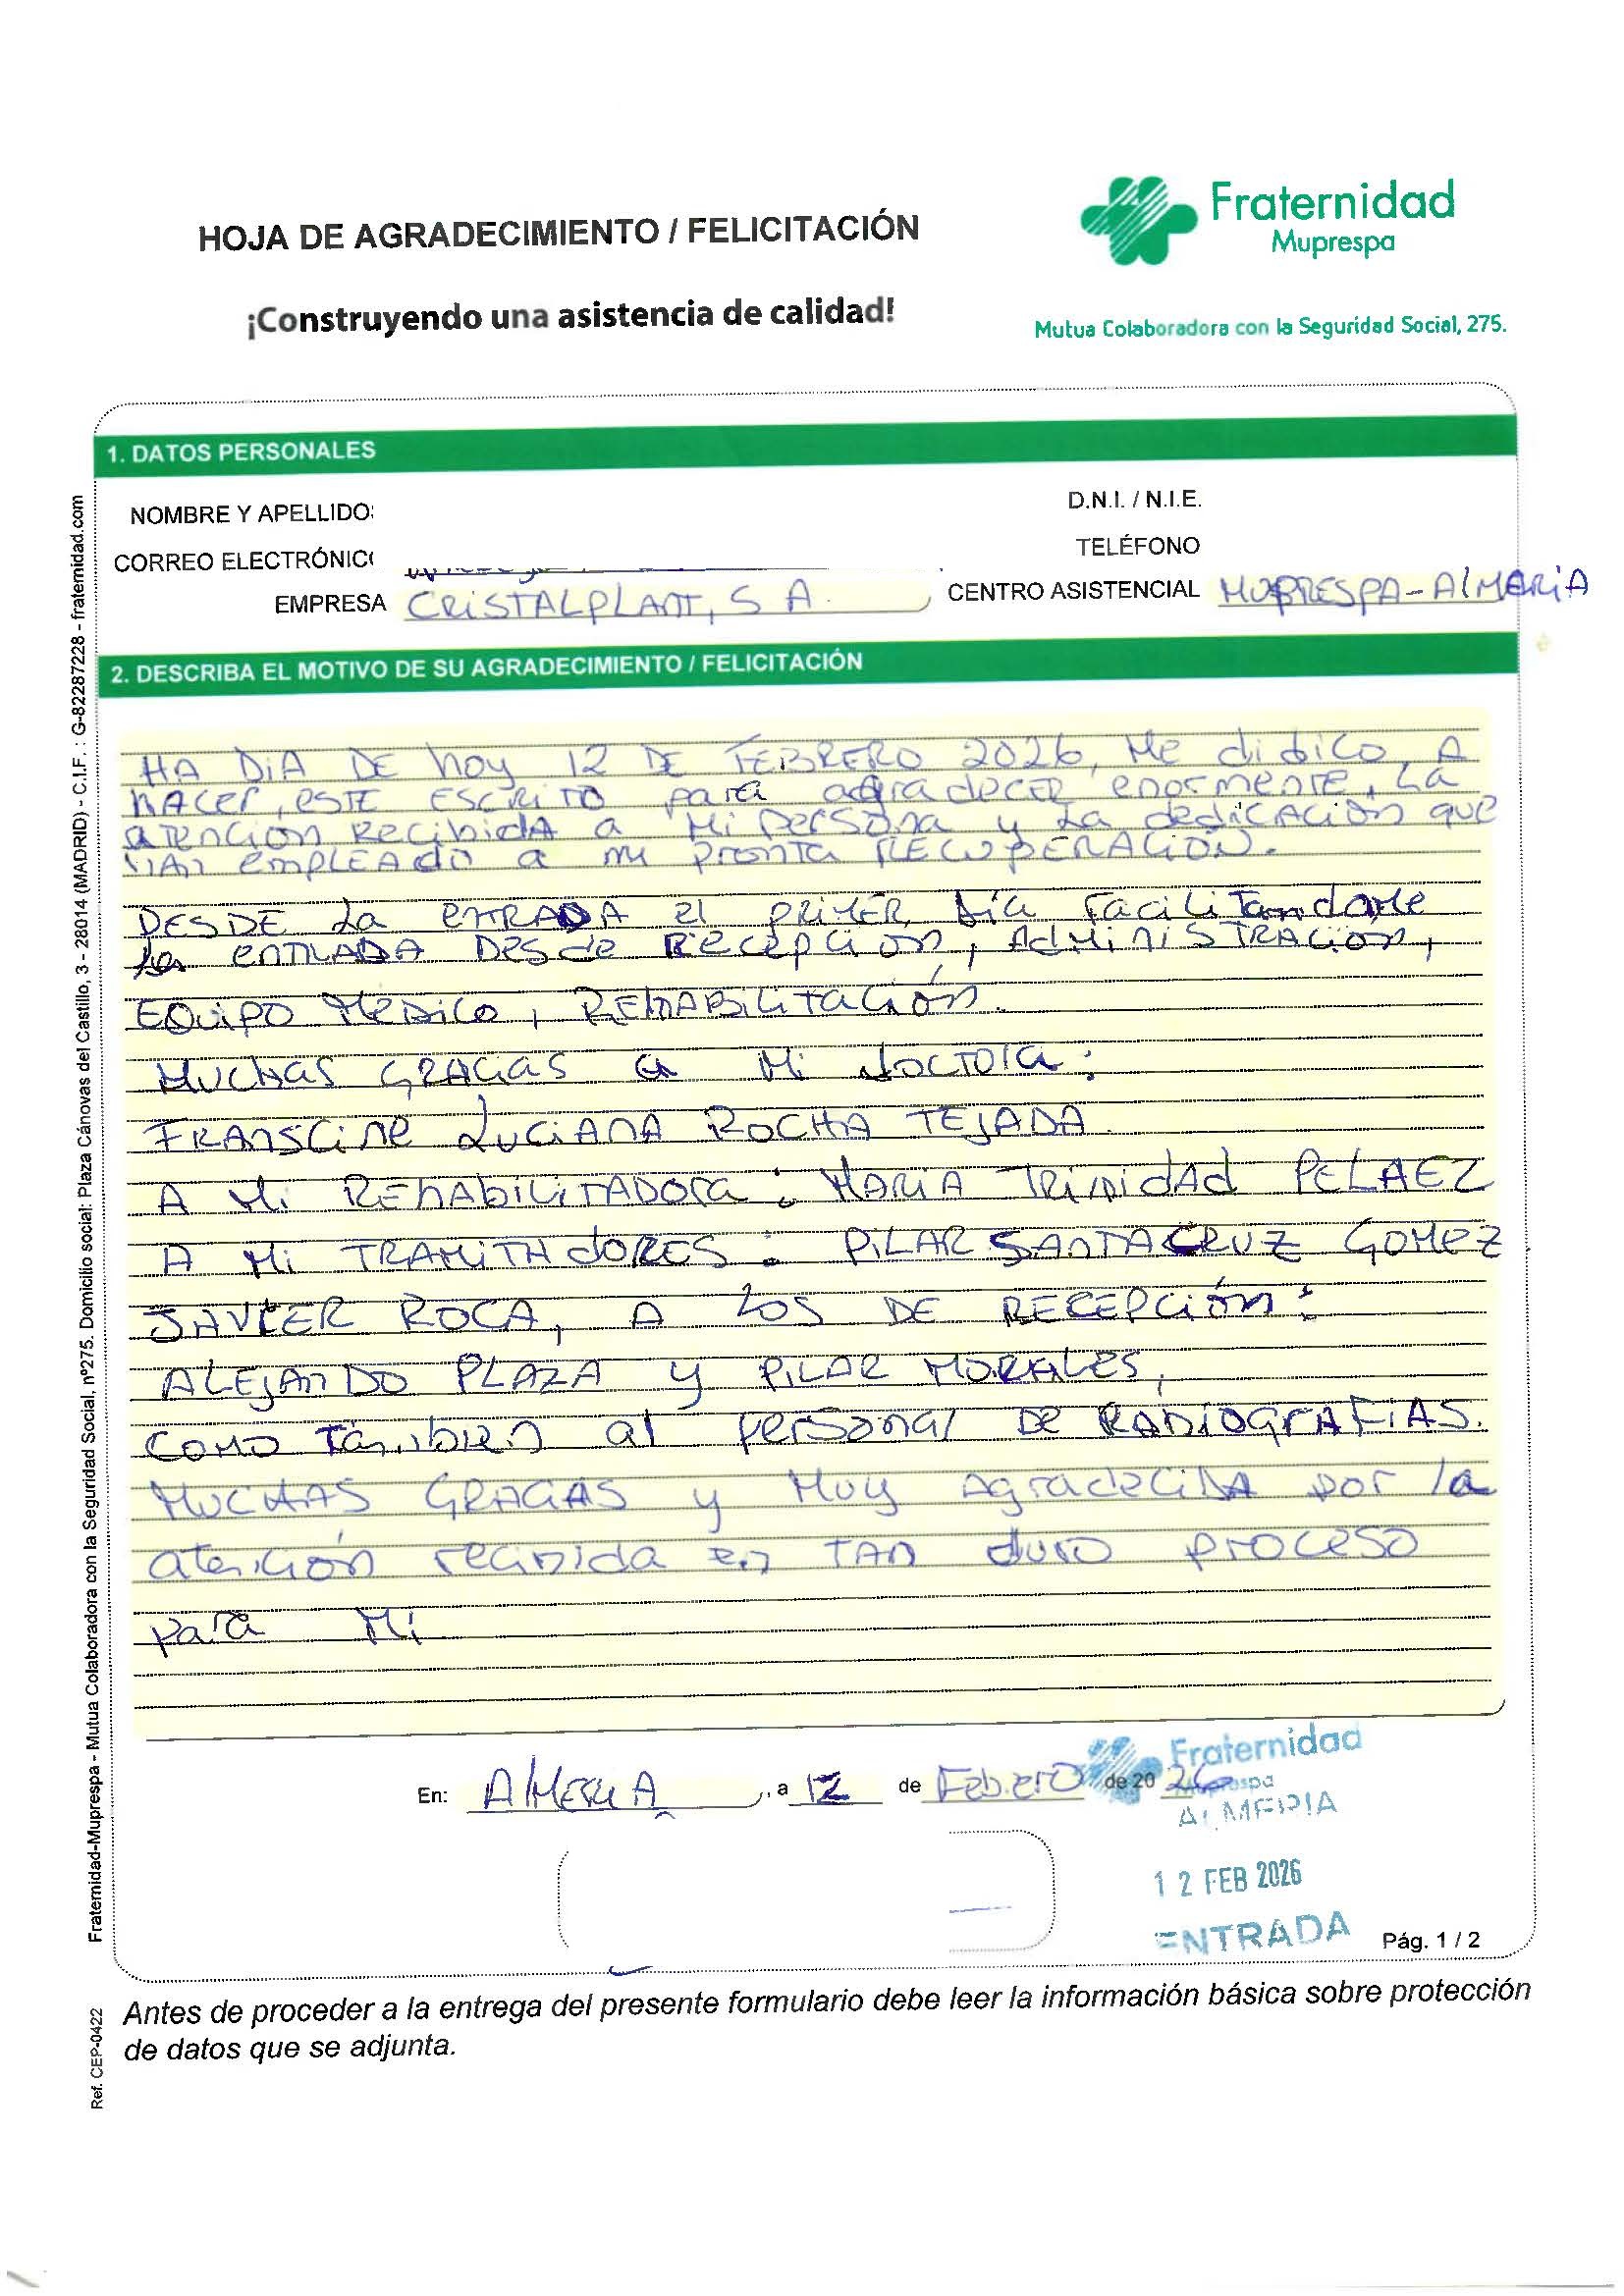 HOJA DE AGRADECIMIENTO / FELICITACIÓN
¡Construyendo una asistencia de calidad!
Fraternidad
Muprespa
Mutua Colaboradora con la Seguridad Social, 275.
1. DATOS PERSONALES
NOMBRE Y APELLIDO
D.N.I. / N.I.E.
CORREO ELECTRÓNIC
TELÉFONO
EMPRESA CRISTALPLANT, S A.
CENTRO ASISTENCIAL MUPRESPA-AlMERIA
2. DESCRIBA EL MOTIVO DE SU AGRADECIMIENTO / FELICITACIÓN
HA DIA DE hoy 12 DE FEBRERO 2026, Me A
HACER, ESTE ESCRITO para agradecer enormente, La
ATENCION RECIBIDA a Mi persona y La dedicACIÓN que
HAN empLEAdo a mi pronta RECUPERACION.
DESDE La ENTRADA el PRIMER Día FaciliTandome
La ENTRADA Desde Recepcion, AdMiNiSTRACION,
EQUIPO MEDICO, REHABILITACIÓN.
MUCHAS GRACIAS a Mi doctora:
FRANSCINE LUCIANA ROCHA TEJADA.
A Mi REHABILITADORA: MARIA TRINIDAD PELAEZ
A Mi TRAMITADORES: PILAR SANTACRUZ GOMEZ
JAVIER ROCA, A LOS DE RECEPCIÓN:
ALEJANDO PLAZA y PILAR MORALES,
COMO También al personal DE RADIOGRAFIAS.
MUCHAS GRACIAS y Muy AgradeciDA por la
atención recivida en TAN duro proceso
para Mi
En: AlMERIA, a 12 de Febrero de 2026
Fraternidad
Muprespa
ALMERIA
12 FEB 2026
ENTRADA
Pág. 1 / 2
Antes de proceder a la entrega del presente formulario debe leer la información básica sobre protección
de datos que se adjunta.
Fraternidad-Muprespa - Mutua Colaboradora con la Seguridad Social, nº275. Domicilio social: Plaza Cánovas del Castillo, 3 - 28014 (MADRID) - C.I.F. : G-82287228 - fraternidad.com
Ref. CEP-0422